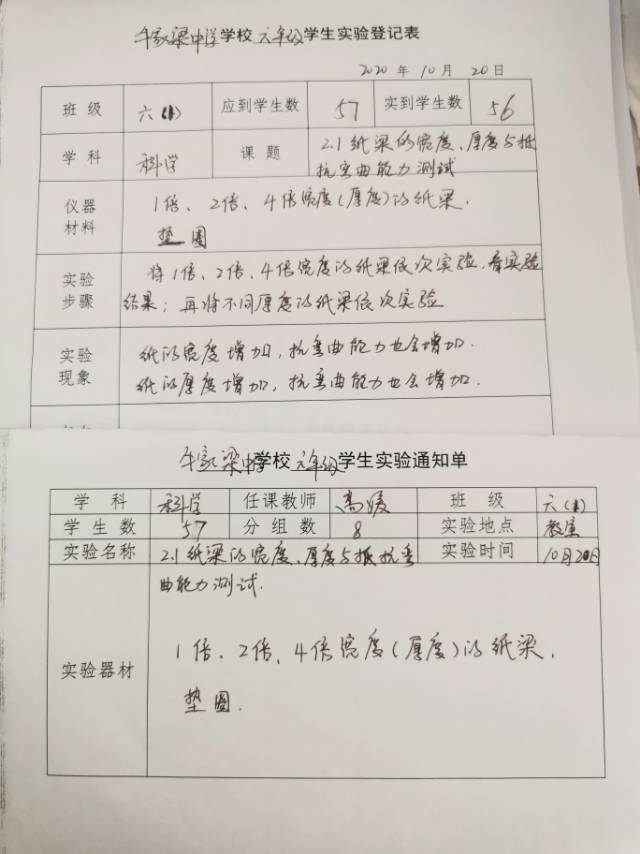 牛家梁中学学校六年级学生实验登记表
2020年10月20日
班级 六(1) 应到学生数 57 实到学生数 56
学科 科学 课题 2.1纸梁的宽度、厚度与抵
抗弯曲能力测试
仪器材料 1倍、2倍、4倍宽度(厚度)的纸梁.
垫圈
实验步骤 将1倍、2倍、4倍宽度的纸梁依次实验,看实验
结果;再将不同厚度的纸梁依次实验
实验现象 纸的宽度增加,抗弯曲能力也会增加.
纸的厚度增加,抗弯曲能力也会增加.
牛家梁中学学校六年级学生实验通知单
学科 科学 任课教师 高媛 班级 六(1)
学生数 57 分组数 8 实验地点 教室
实验名称 2.1纸梁的宽度、厚度与抵抗弯 实验时间 10月20日
曲能力测试.
实验器材 1倍、2倍、4倍宽度(厚度)的纸梁,
垫圈.